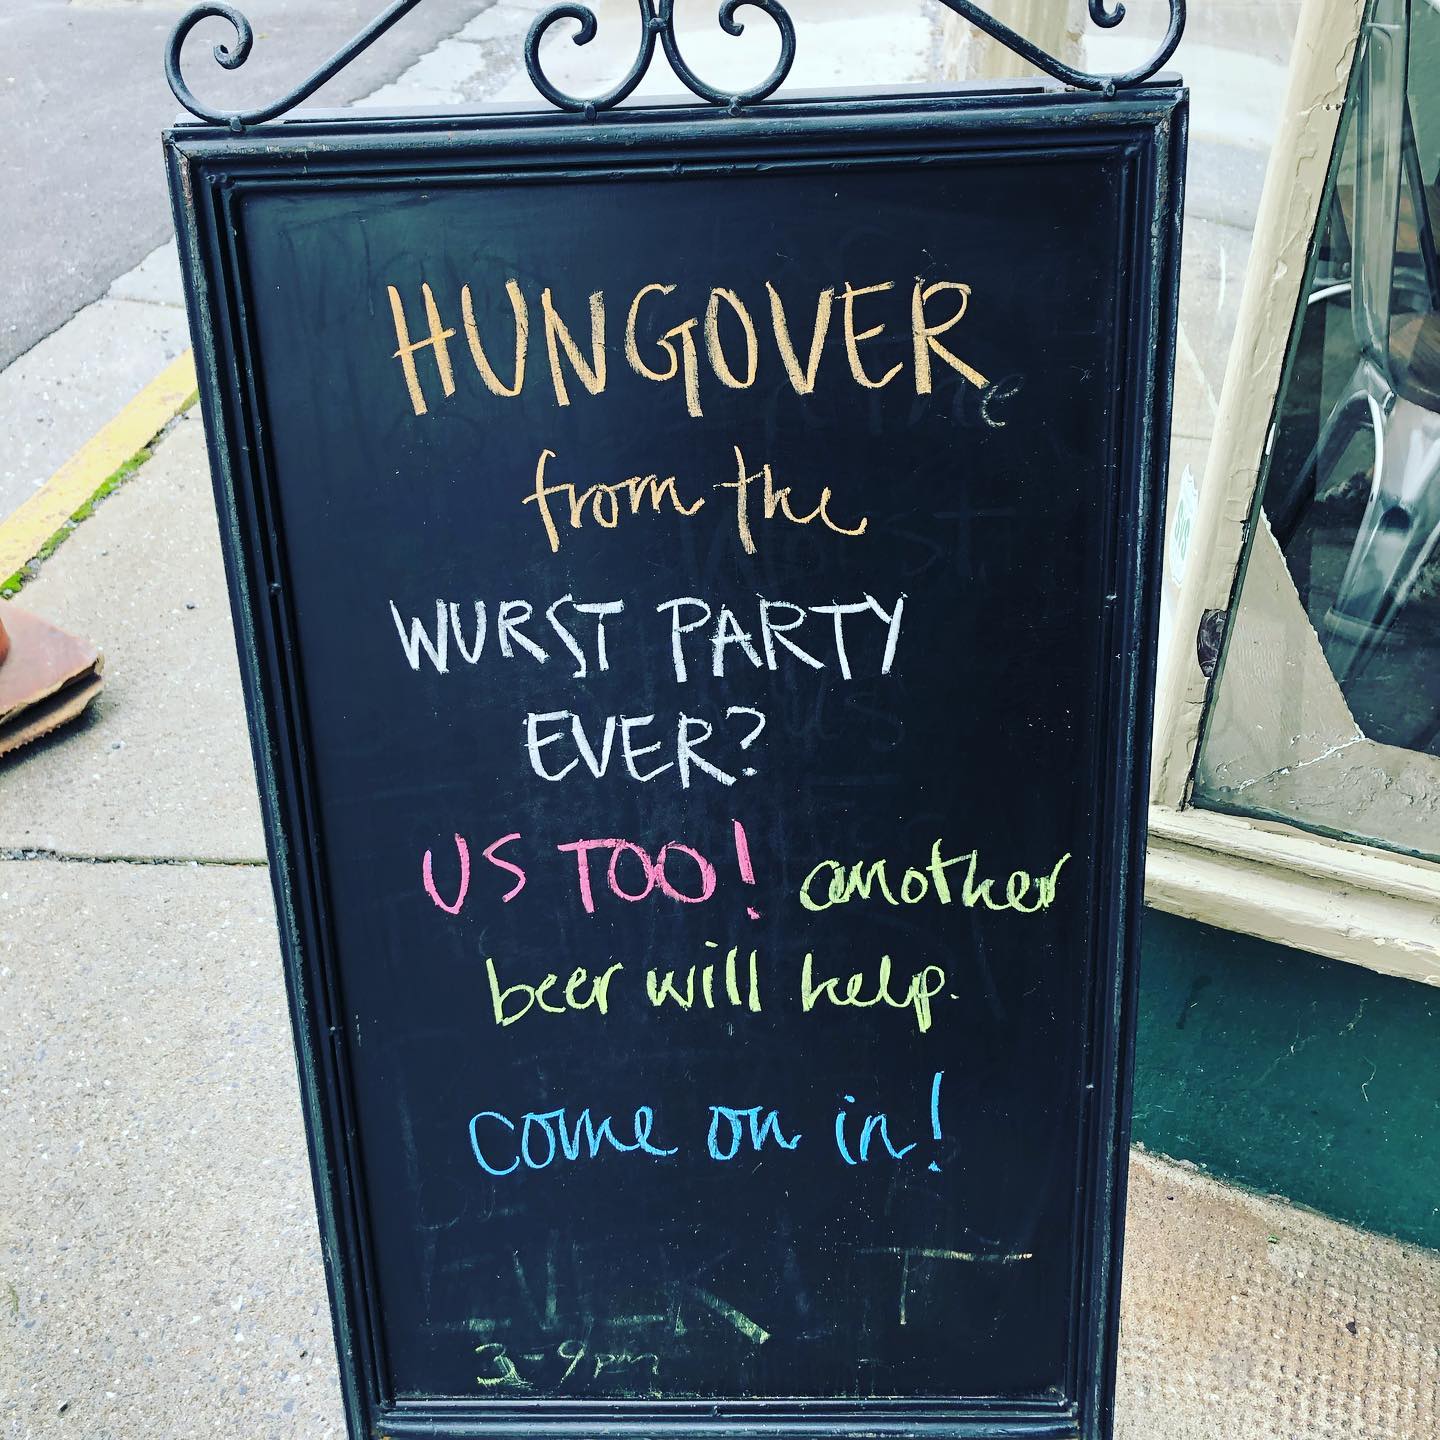 HUNGOVER
from the
WURST PARTY
EVER?
US TOO! another
beer will help.
come on in!
3-9pm